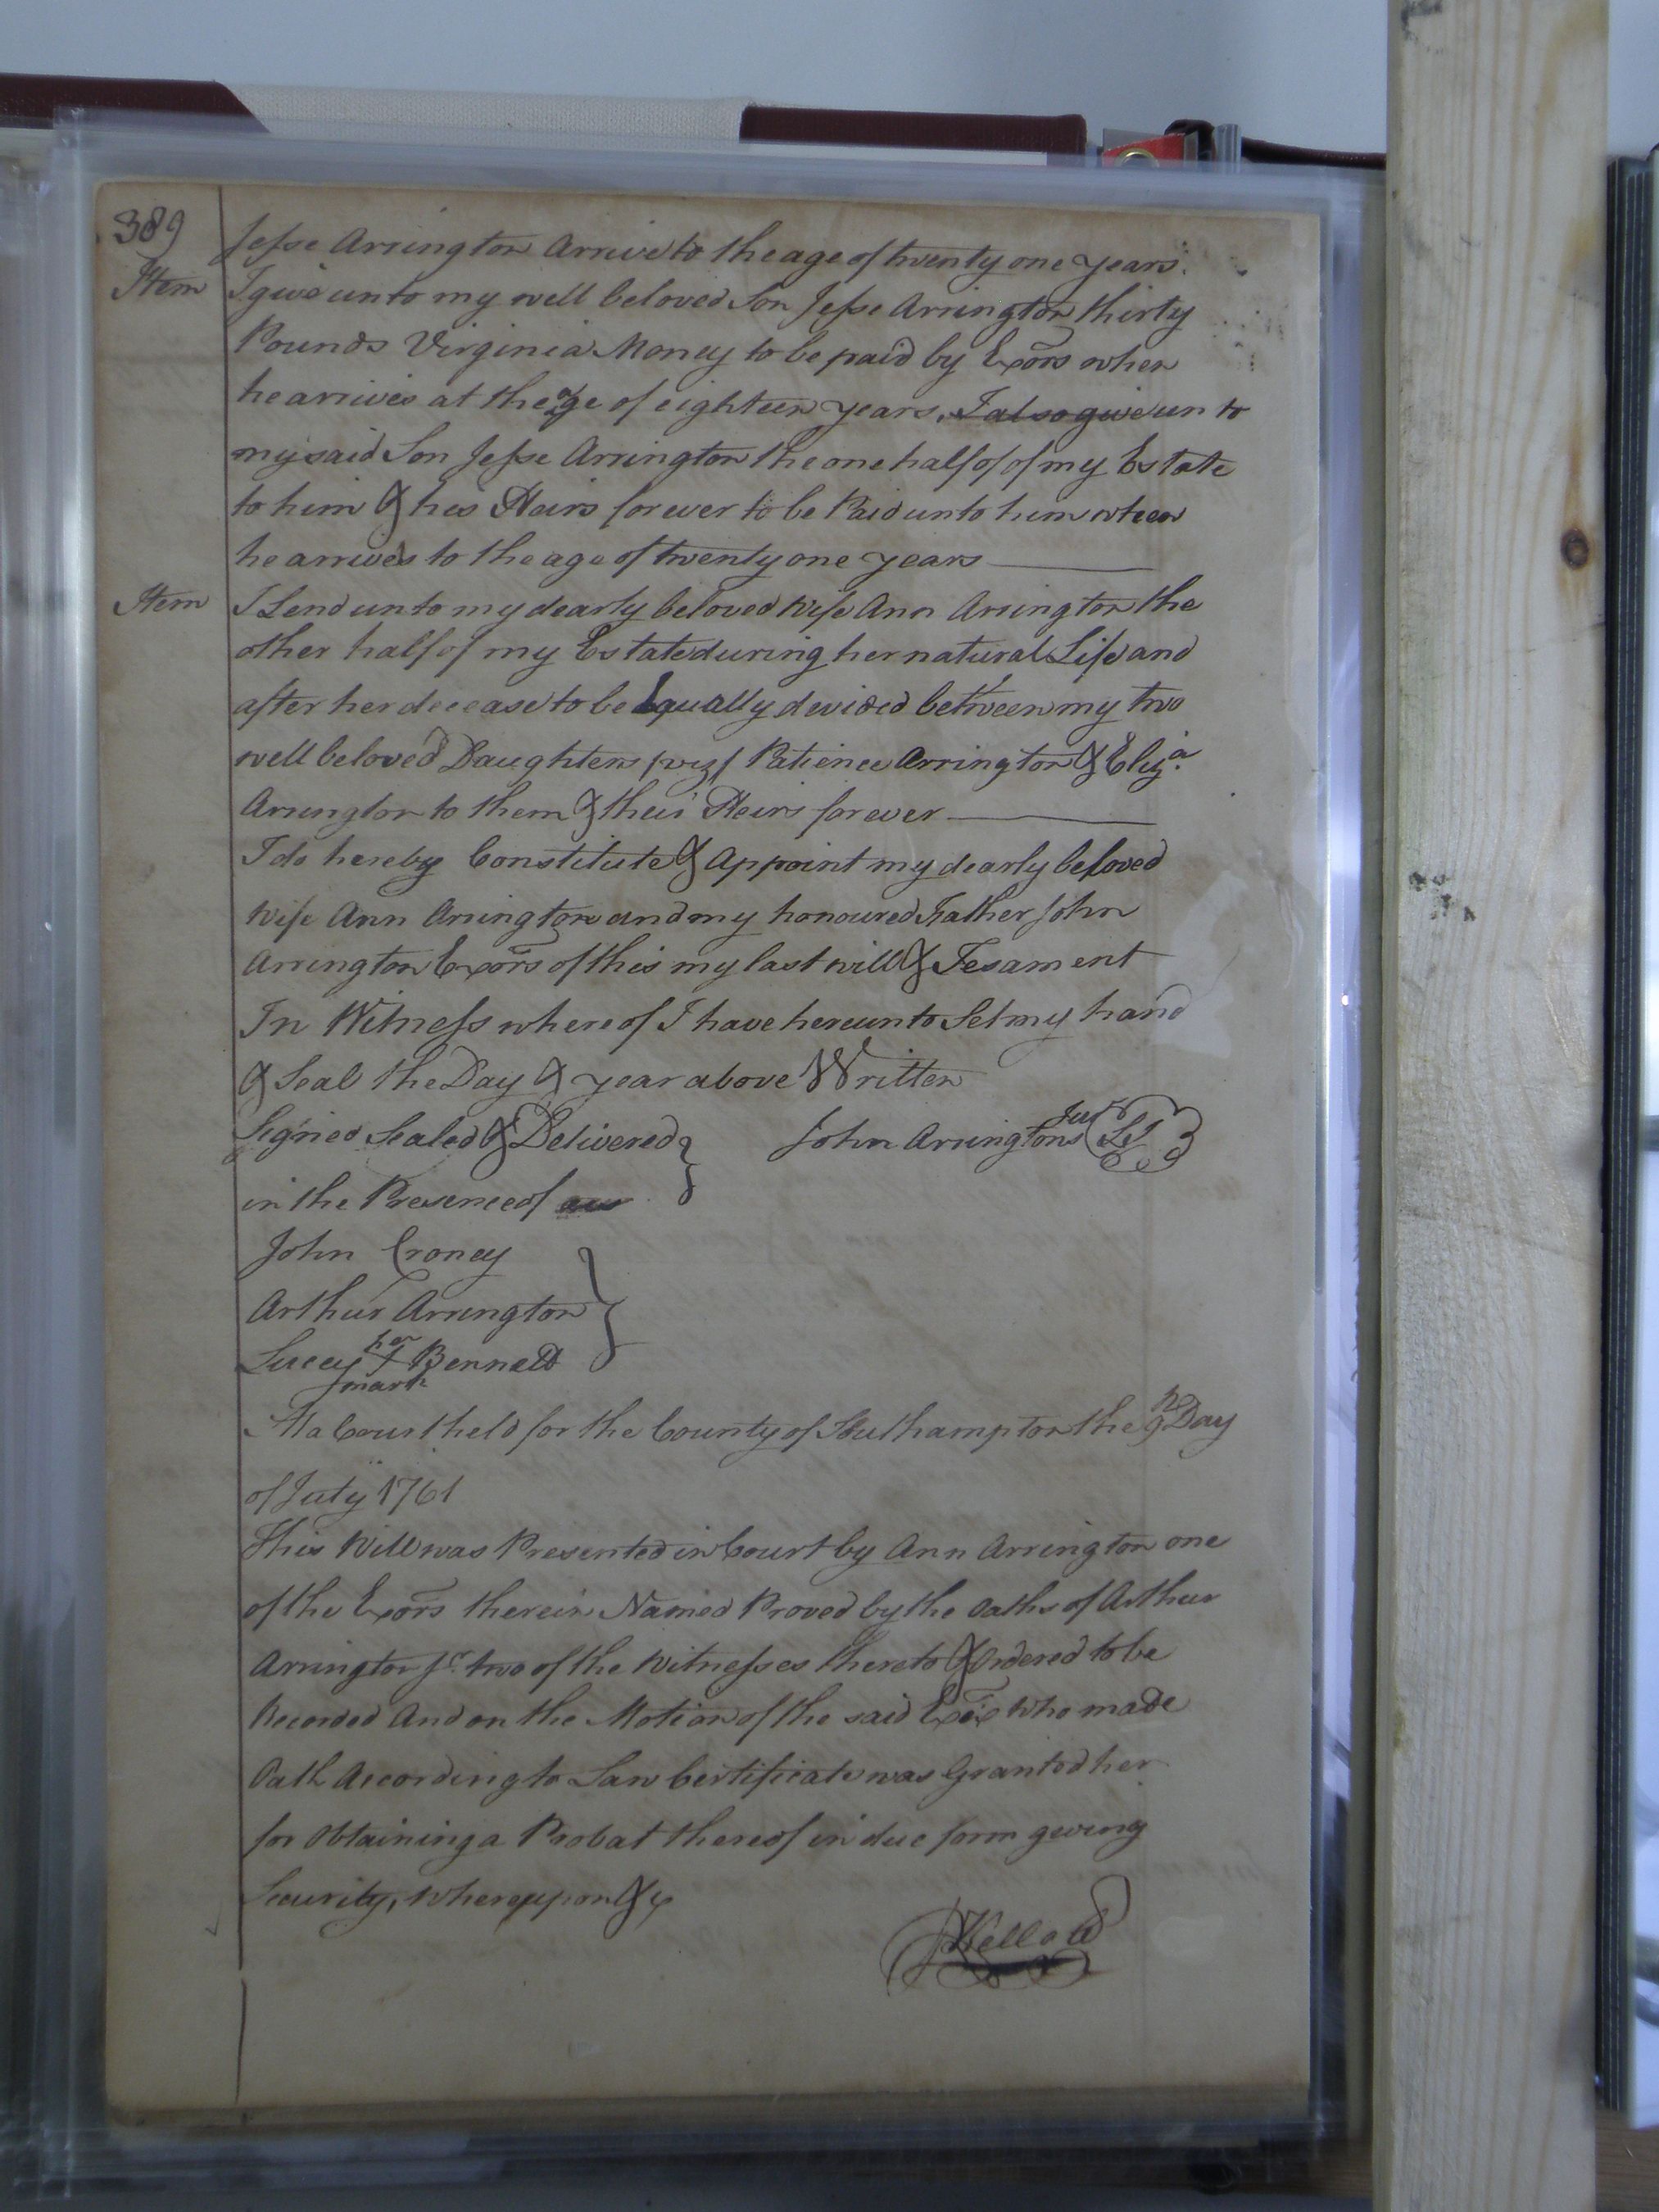 389
Jesse Arrington Arrive to the age of twenty one years.
Item I give unto my well beloved Son Jesse Arrington thirty
Pounds Virginia Money to be paid by Exors when
he arrives at the age of eighteen years, I also give un to
my said Son Jesse Arrington the one half of of my Estate
to him & his Heirs forever to be Paid unto him when
he arrives to the age of twenty one years
Item I Lend unto my dearly beloved Wife Ann Arrington the
other half of my Estate during her natural Life and
after her decease to be Equally devided between my two
well beloved Daughters /viz/ Patience Arrington & Eliza
Arrington to them & their Heirs forever
I do hereby Constitute & Appoint my dearly beloved
Wife Ann Arrington and my honoured Father John
Arrington Exors of this my last will & Tesament
In Witness whereof I have hereunto Set my hand
& Seal the Day & year above Written
Signed Sealed & Delivered } John Arrington Junr LS
in the Presence of
John Croney
Arthur Arrington
Lucey her Bennett
mark
At a Court held for the County of Southampton the 9th Day
of July 1761
This Will was Presented in Court by Ann Arrington one
of the Exors therein Named Proved by the Oaths of Arthur
Arrington Jr. two of the Witnesses thereto & Ordered to be
Recorded And on the Motion of the said Exix who made
Oath According to Law Certificate was Granted her
for Obtaining a Probat thereof in due form giving
Security, whereupon &c